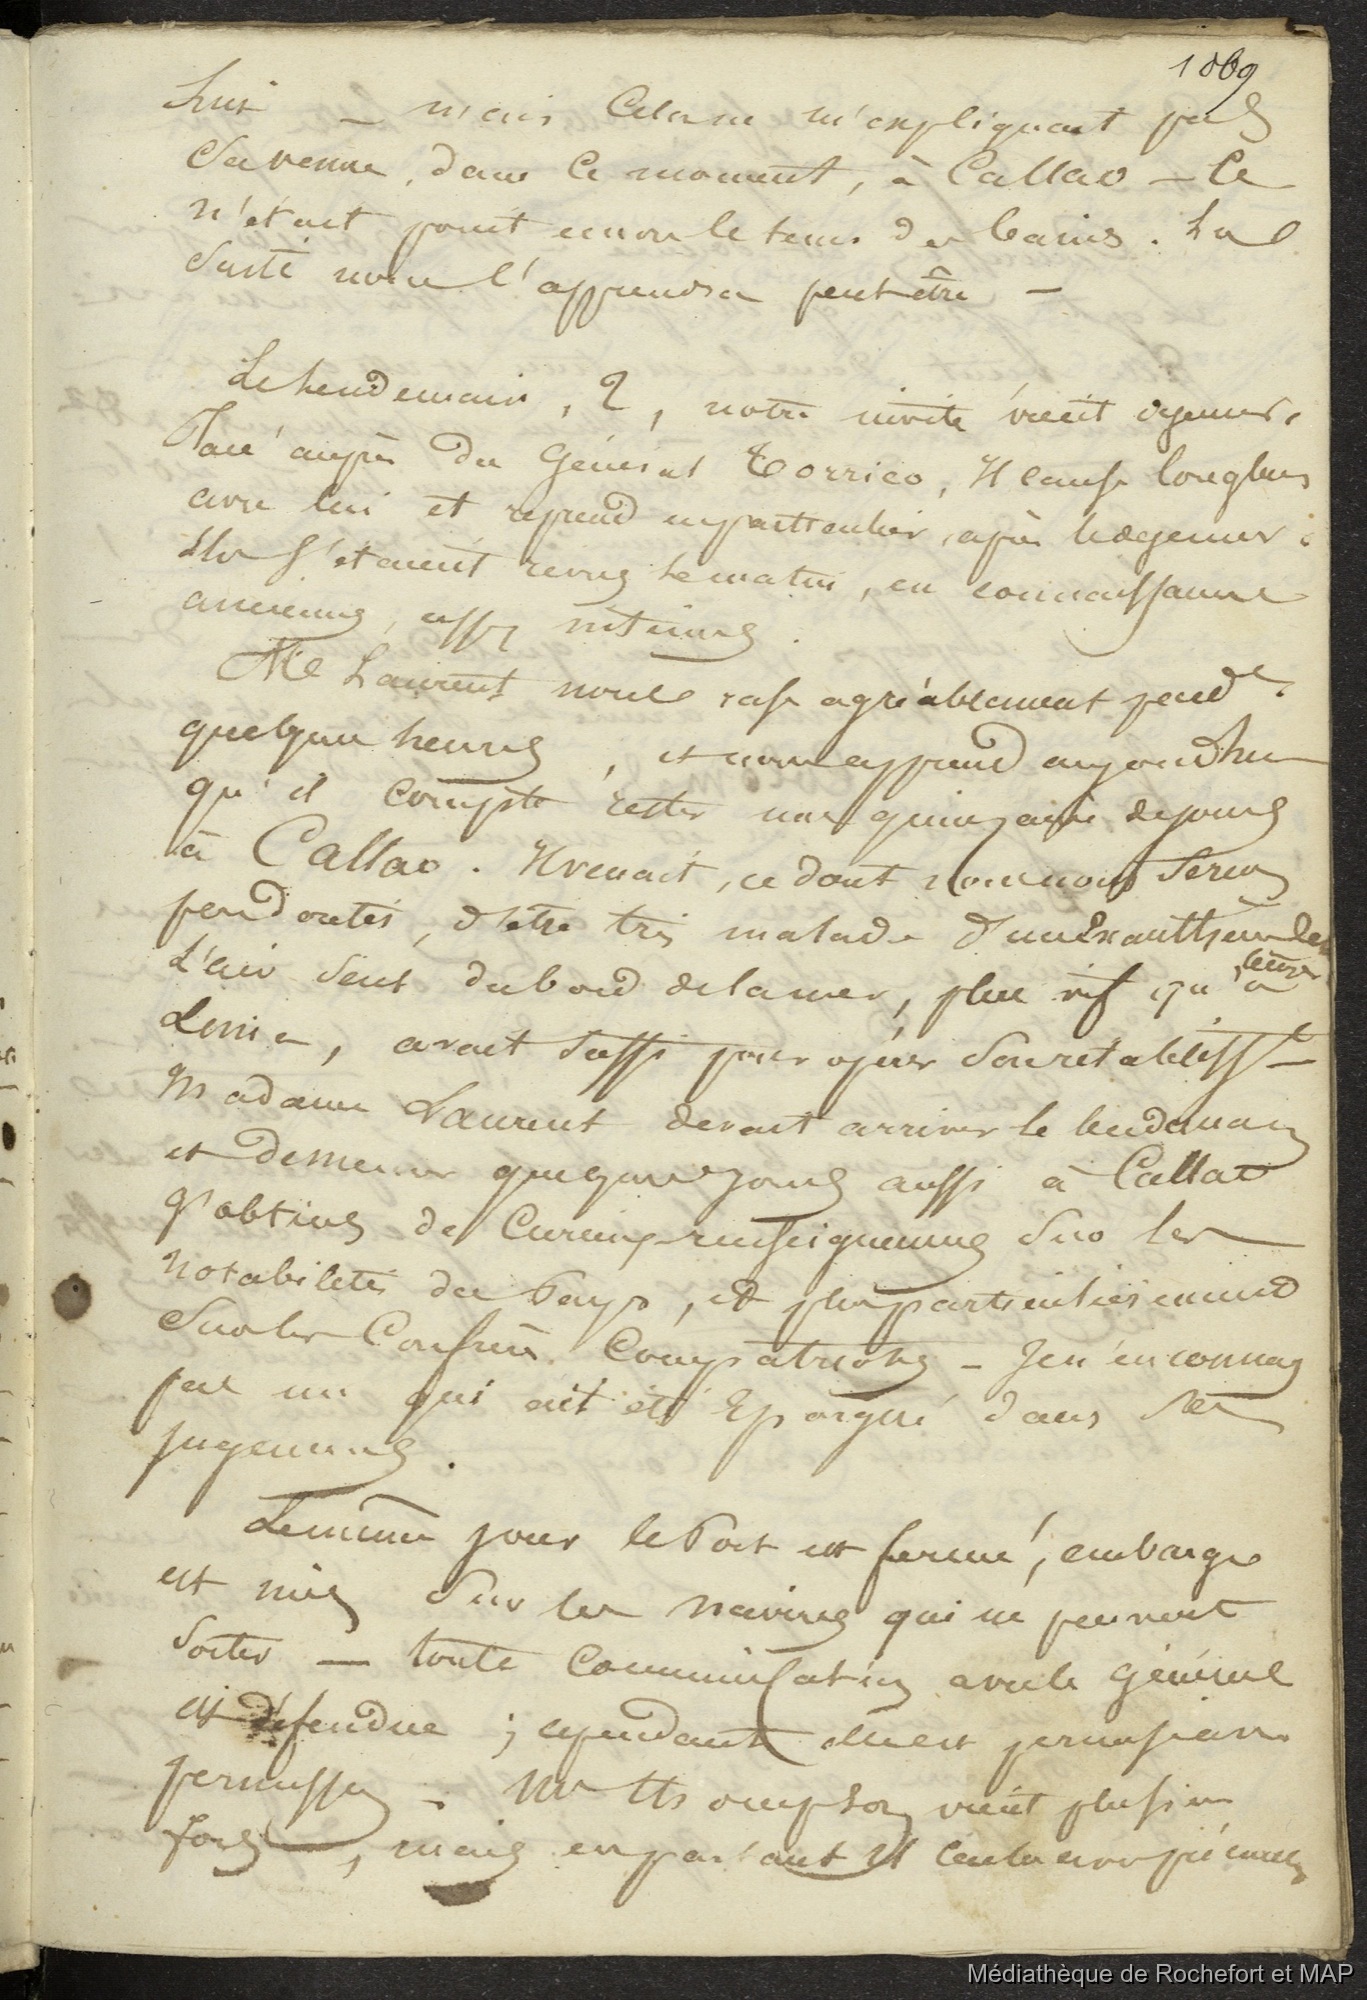 1069
lui – mais cela ne m'expliquait pas
Sa venue, dans ce moment, à Callao – Ce
n'était point encore le tems des bains. La
Suite nous l'apprendra peut être –
Le lendemain, 2, notre invité vient dejeuner,
Placé auprès du Général Torrico, Il cause longtems
avec lui et reprend en particulier, après le dejeuner.
Ils s'étaient revus le matin, en connaissances
anciennes, assez intimes.
Mr Laurent nous rase agréablement pendt
quelques heures, et nous apprend aujourdhui
qu'il compte rester une quinzaine de jours
à Callao. Il venait, ce dont nous nous Serions
peu doutés, d'être très malade d'un Exanthème
L'air seul du bord de la mer, plus vif qu'à
Lima, avait suffi pour opérer Son retablisst –
Madame Laurent devait arriver le lendemain
et demeurer quelques jours aussi à Callao
J'obtins de curieux renseignemens Sur les
notabilités du Pays, et plus particulièrement
Sur les Confrères Compatriotes – Je n'en connais
pas un qui ait été Epargné dans ses
jugemens.
Le même jour le Port est fermé, embargo
est mis Sur les navires qui ne peuvent
Sortir – toute Communication avec le Général
est défendue ; cependant elle est permise sans
permission. Mr Thompson vient plusieurs
fois, mais en partant il